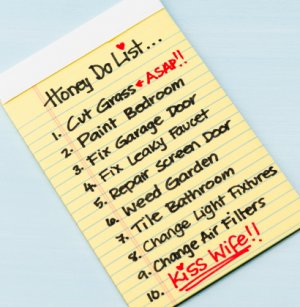 Honey Do List...
1. Cut Grass ← ASAP!!
2. Paint Bedroom
3. Fix Garage Door
4. Fix Leaky Faucet
5. Repair Screen Door
6. Weed Garden
7. Tile Bathroom
8. Change Light Fixtures
9. Change Air Filters
10. Kiss Wife!!